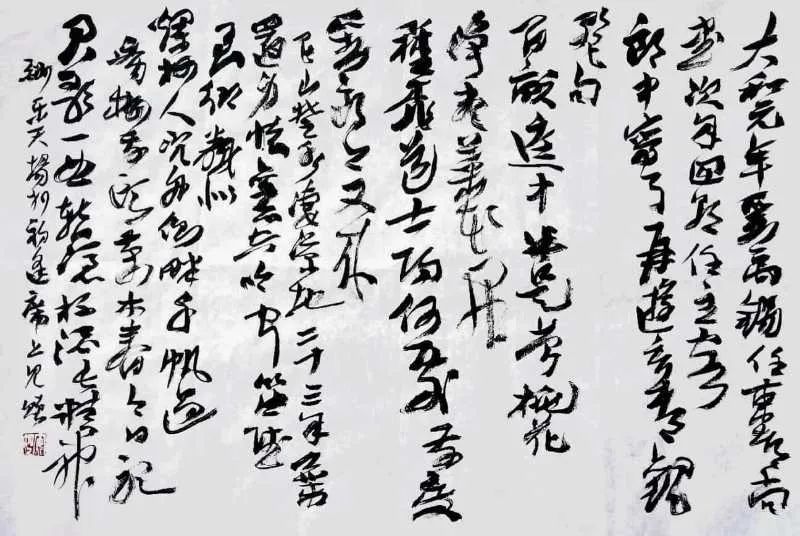 大和元年劉禹錫任東都尚
書次年回朝任主客
郎中寫了再遊玄都觀
絕句
百畝庭中半是苔桃花
淨盡菜花開
種桃道士歸何處前度
劉郎今又來
巴山楚水淒涼地二十三年棄
置身懷舊空吟聞笛賦
到鄉翻似
爛柯人沉舟側畔千帆過
病樹前頭萬木春今日聽
君歌一曲暫憑杯酒長精神
酬樂天揚州初逢席上見贈